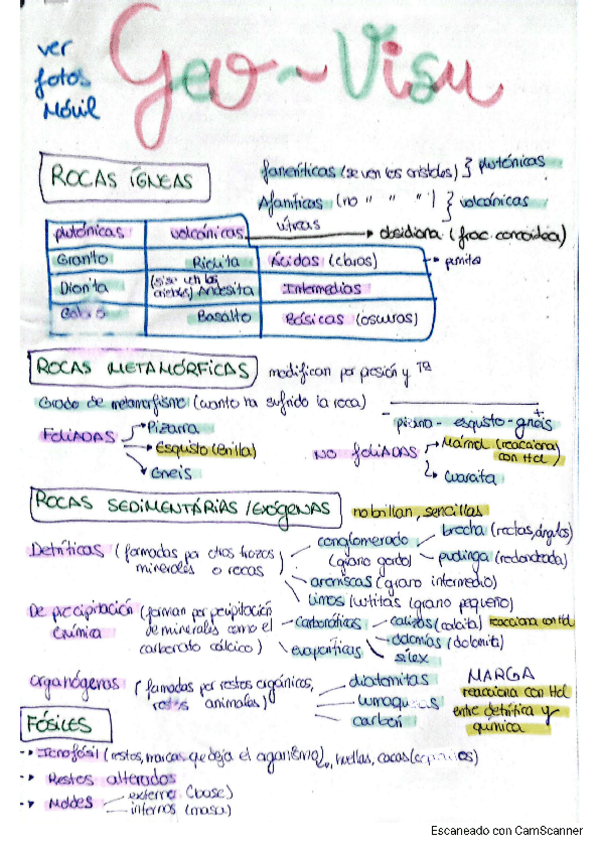 ver
fotos
Móvil
Geo-Visu
ROCAS ÍGNEAS
faneríticas (se ven los cristales) } plutónicas
Afaníticas (no " " " ) } volcánicas
vítreas → obsidiana (frac. concoidea)
plutónicas volcánicas
Granito Riolita Ácidas (claros)
Diorita Andesita Intermedias
Basalto Básicas (oscuros)
ROCAS METAMÓRFICAS modifican por presión y Tª
Grado de metamorfismo (cuanto ha sufrido la roca)
+
pizarra - esquisto - gneis
FOLIADAS
Pizarra
Esquisto (brilla)
Gneis
NO FOLIADAS
Mármol (reacciona con Hcl)
Cuarcita
ROCAS SEDIMENTÁRIAS / EXÓGENAS no brillan, sencillas
Detríticas (formadas por otros trozos
minerales o rocas)
conglomerado
(grano gordo)
brecha (rectas, ángulos)
pudinga (redondeada)
areniscas (grano intermedio)
Limos / lutitas (grano pequeño)
De precipitación
química
(forman por precipitación
de minerales como el
carbonato cálcico)
carbonáticas
calizas (calcita) reacciona con Hcl
dolomías (dolomita)
evaporíticas
sílex
organógenas (formadas por restos orgánicos,
restos animales)
diatomitas
carbón
MARGA
reacciona con Hcl
entre detrítica y
química
FÓSILES
Icnofósil (restos, marcas que deja el organismo), huellas, cacas
Restos alterados
Moldes
externa (base)
internos (masa)
Escaneado con CamScanner